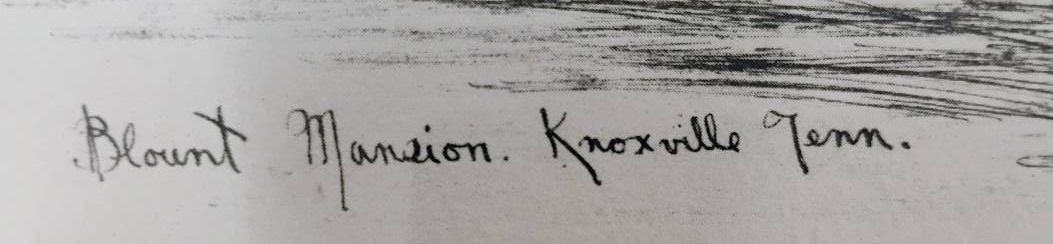 Blount Mansion. Knoxville Tenn.